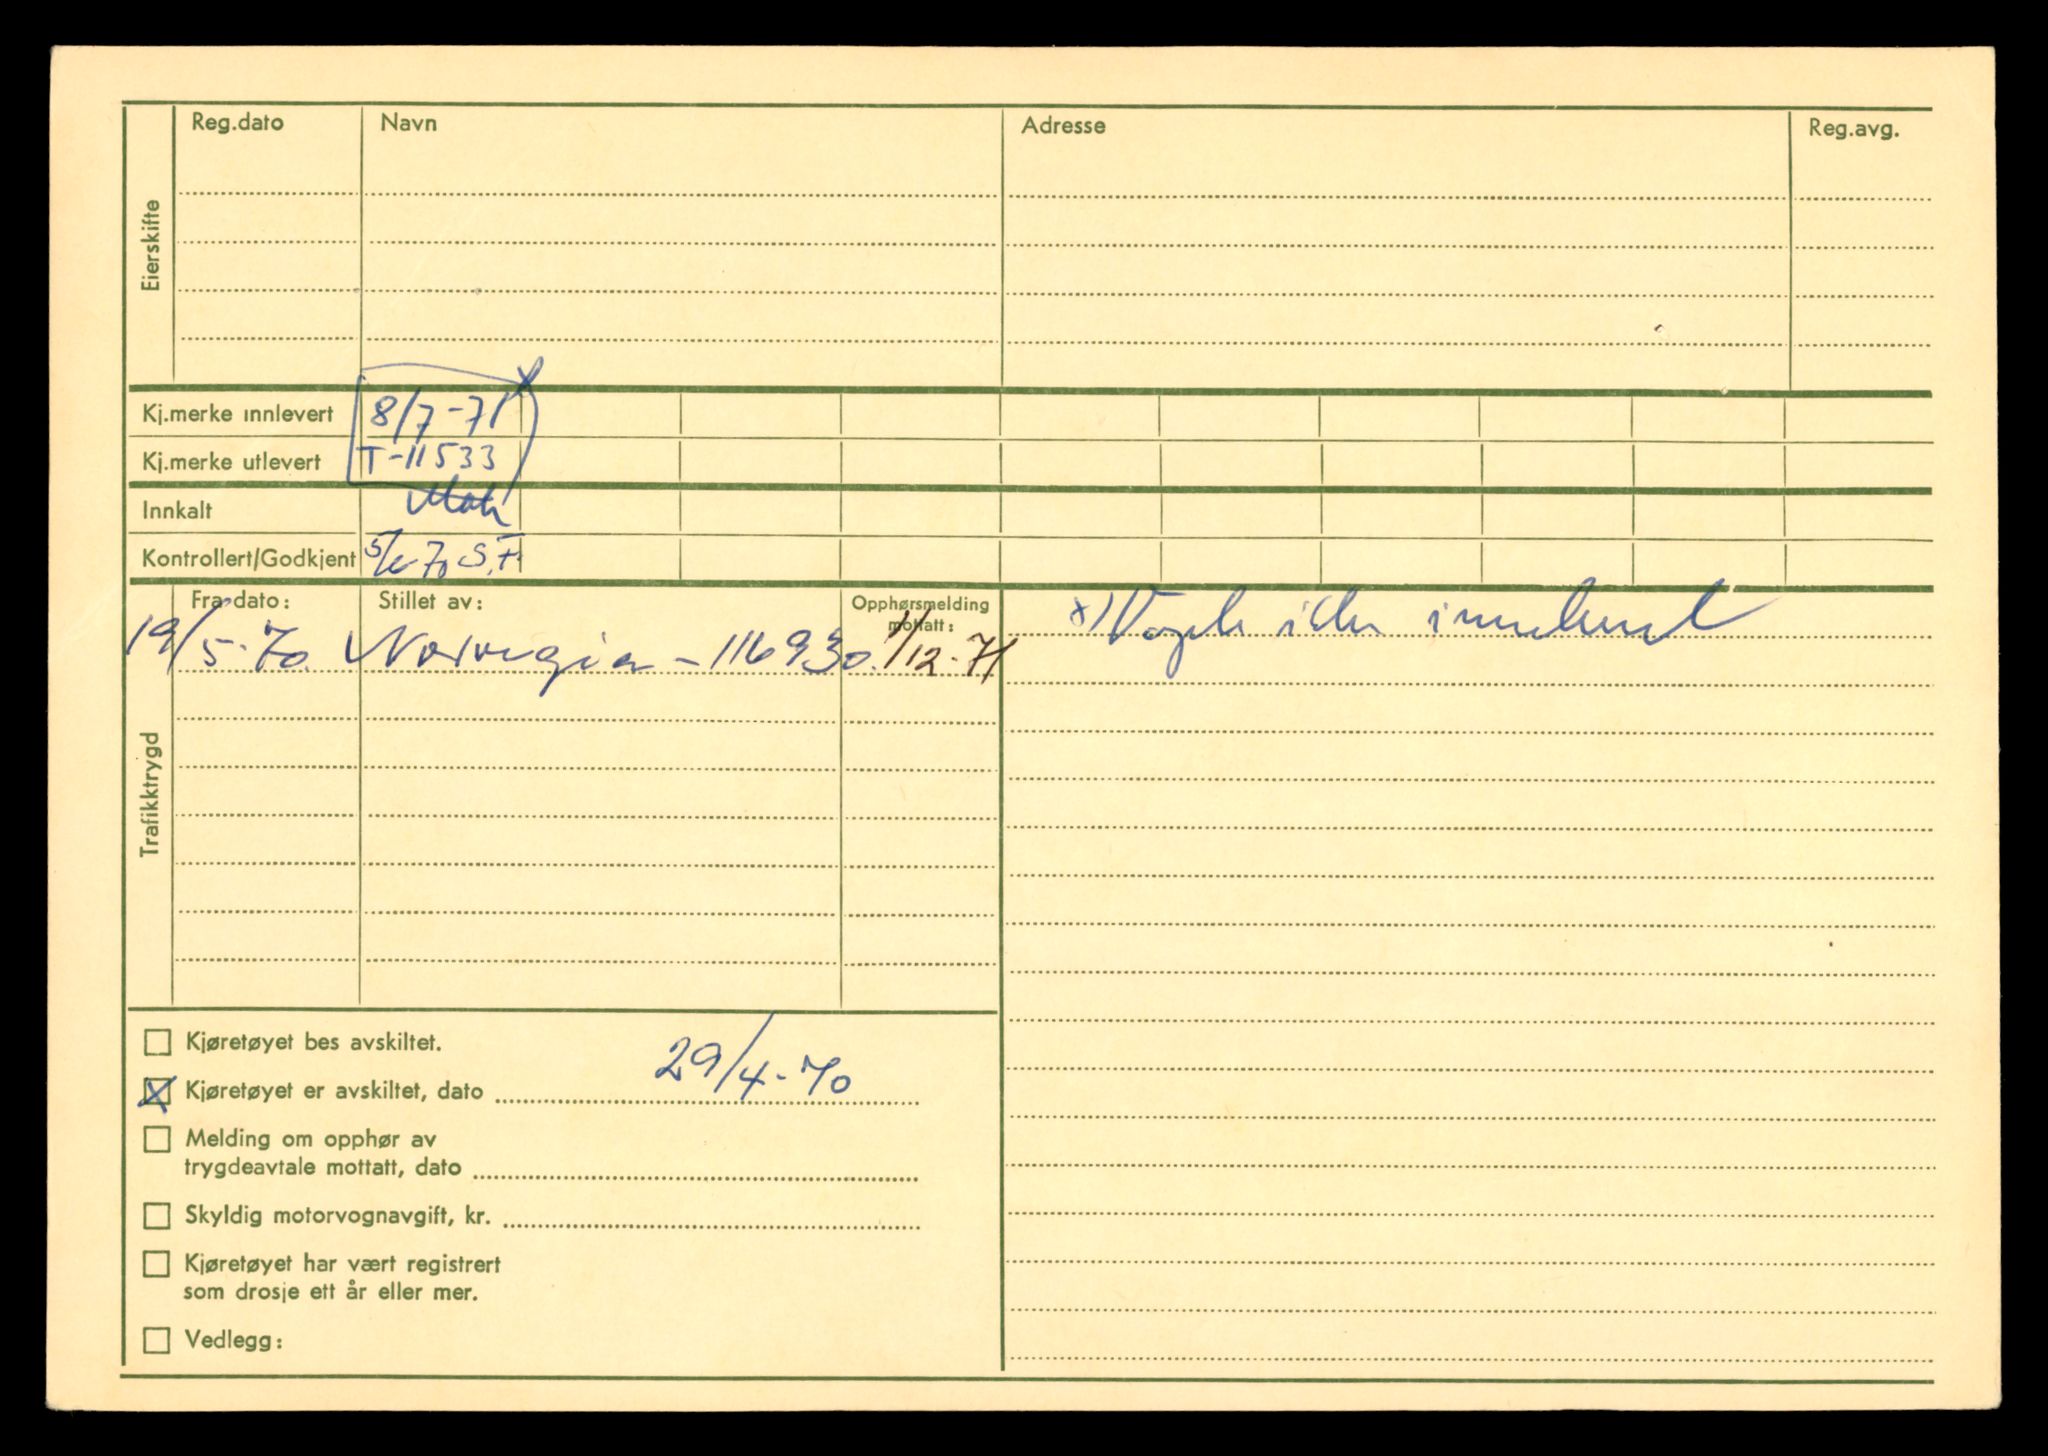 Reg.dato Navn Adresse Reg.avg.
Eierskifte
Kj.merke innlevert 8/7-71 x
Kj.merke utlevert T-11533
Innkalt
Kontrollert/Godkjent 5/6-70 S.F.
Fra dato: Stillet av: Opphørsmelding mottatt:
19/5-70 Norvegia - 116930. 1/12-71
x) ikke innlevert
Trafikktrygd
Kjøretøyet bes avskiltet.
x Kjøretøyet er avskiltet, dato 29/4-70
Melding om opphør av
trygdeavtale mottatt, dato
Skyldig motorvognavgift, kr.
Kjøretøyet har vært registrert
som drosje ett år eller mer.
Vedlegg: